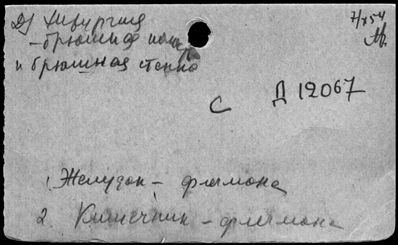 Д) Хирургия 7/X 54
- брюшная полость
и брюшная стенка
С Д 12067
1. Желудок - флегмона
2. Кишечник - флегмона